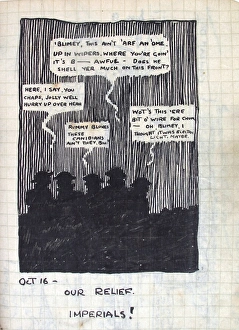 'BLIMEY, THIS AIN'T 'ARF AN 'OME,
UP IN WIPERS, WHERE YOU'RE GOIN'
IT'S B—— AWFUL – DOES HE
SHELL YER MUCH ON THIS FRONT?
HERE, I SAY, YOU
CHAPS, JOLLY WELL
HURRY UP OVER HERE
RUMMY BLOKES
THESE
CANIDIANS
AIN'T THEY, BILL
WOT'S THIS 'ERE
BIT O' WIRE FOR CHUM
– OH BLIMEY, I
THOUGHT ITWAS ELECTRIC
LIGHT, MAYBE.
OCT 16 –
OUR RELIEF.
IMPERIALS!